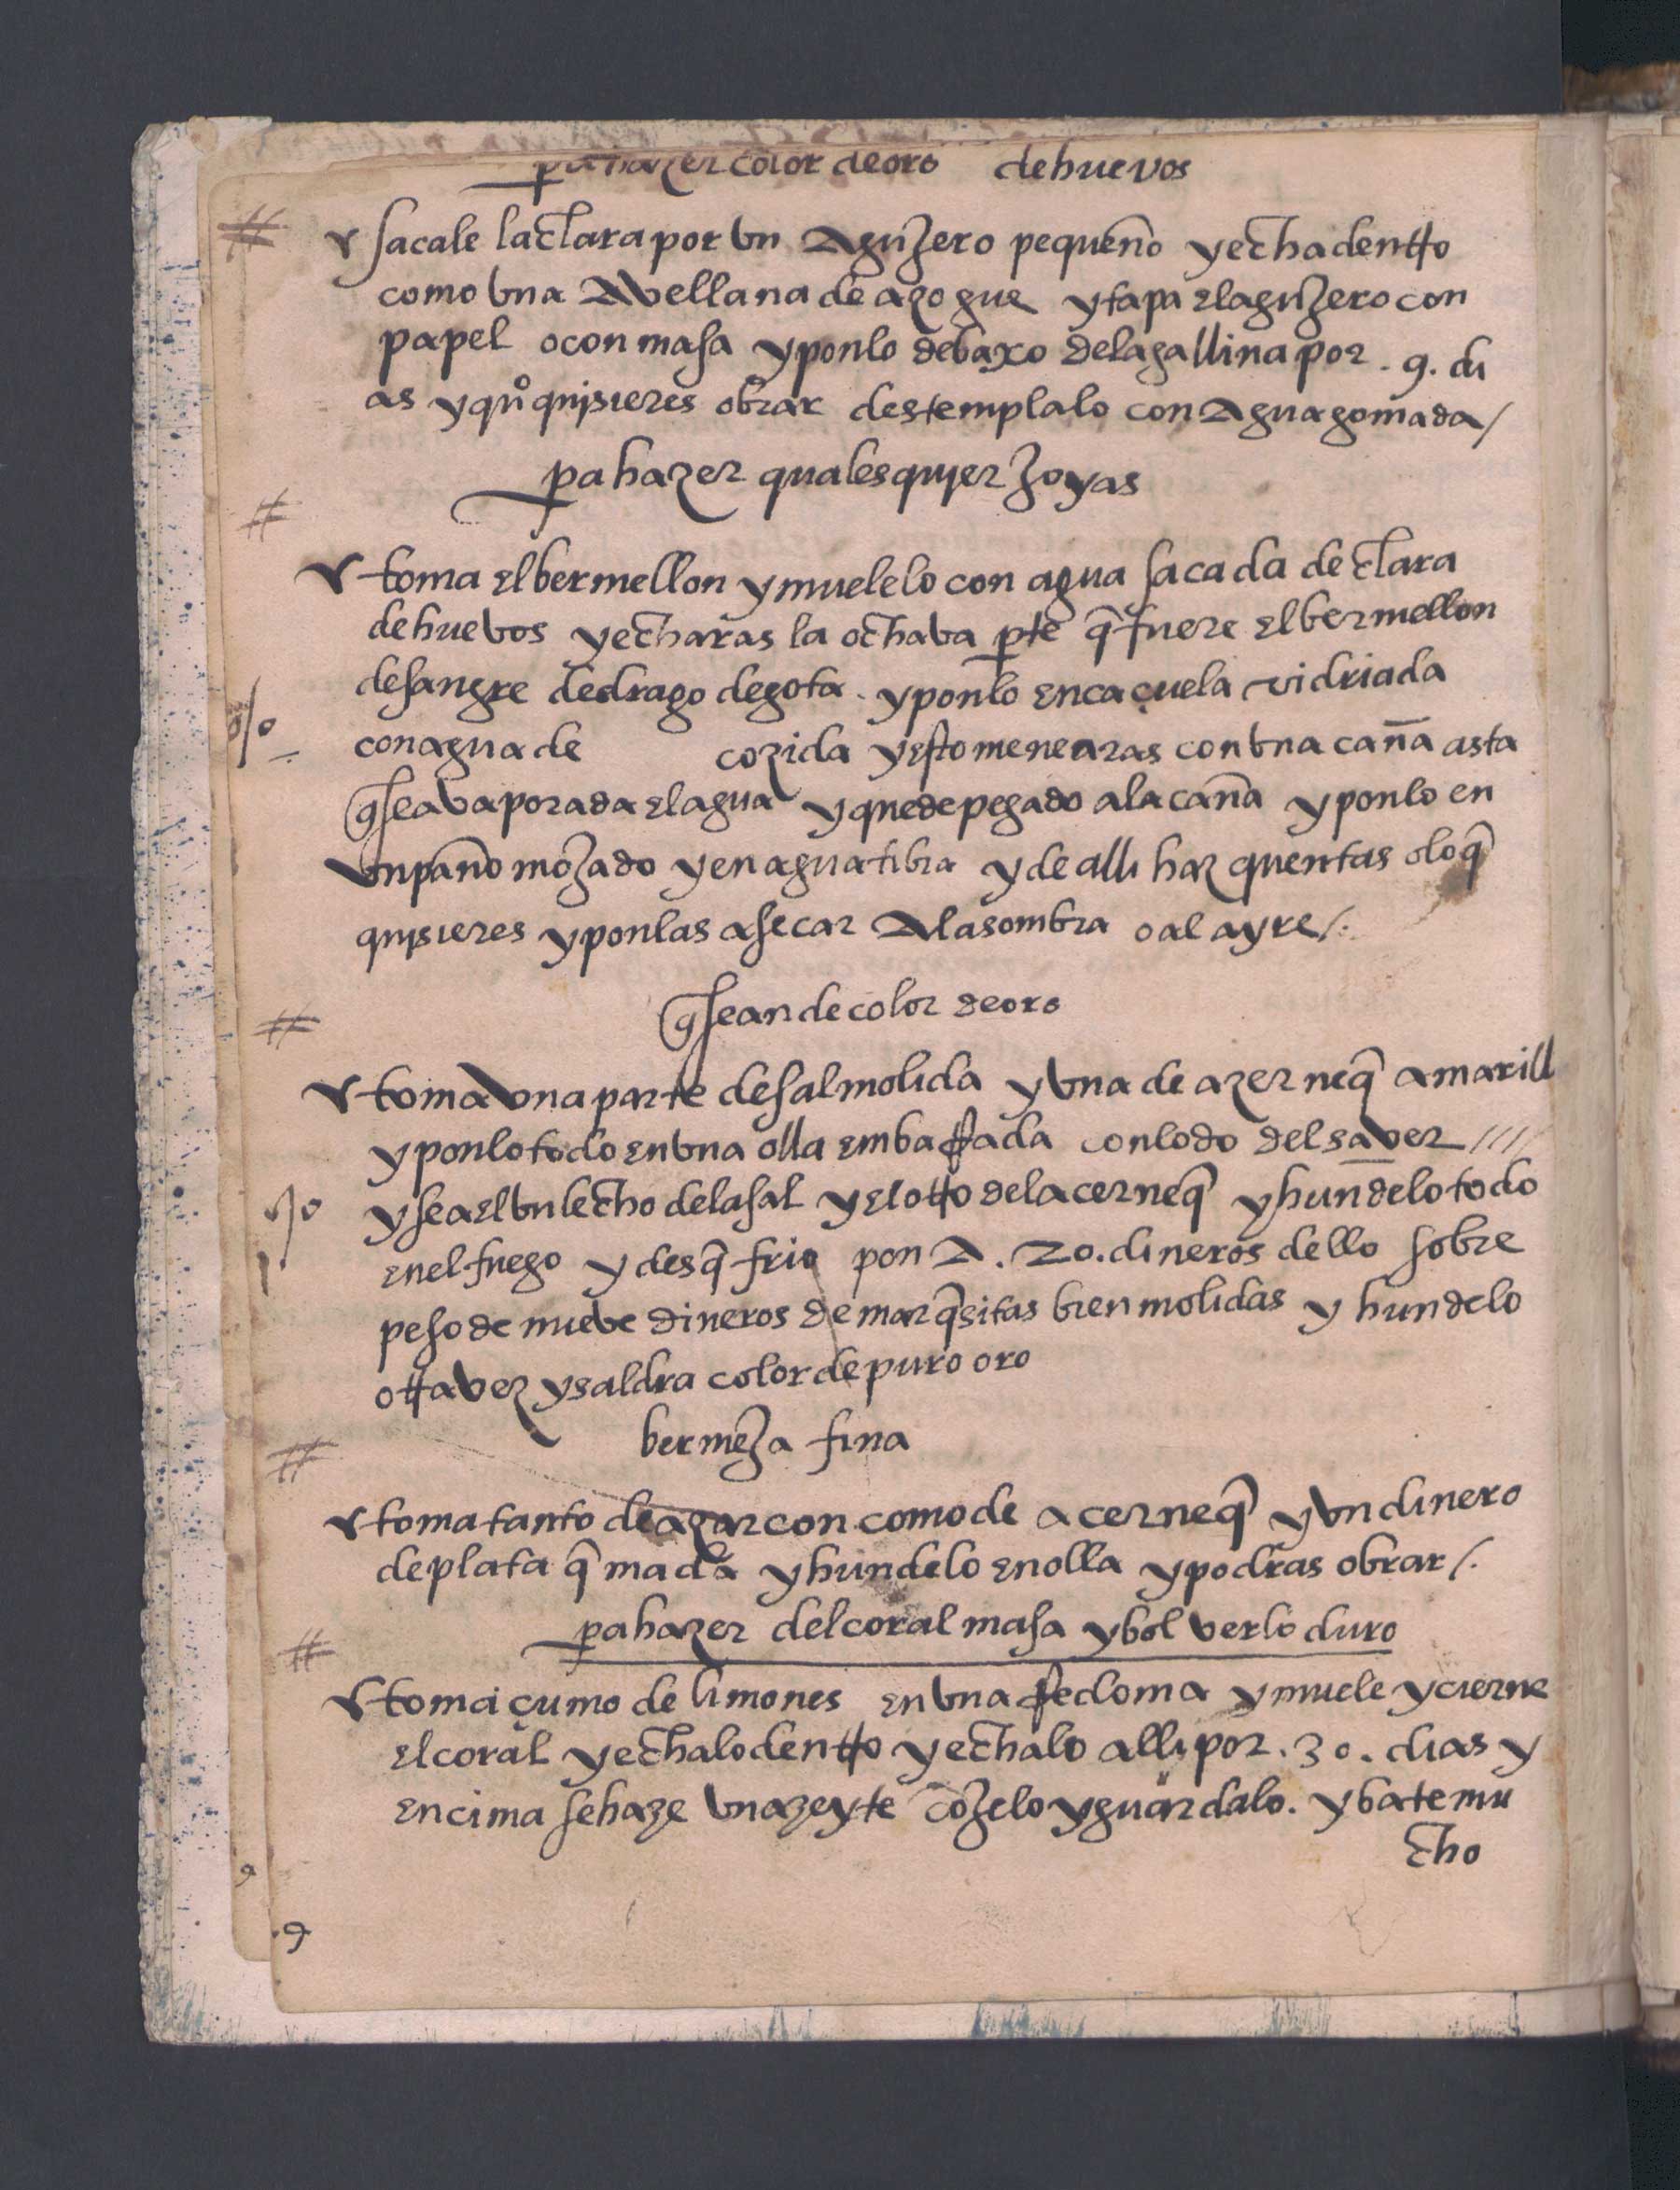 pa hazer color de oro de huevos
# sacale la clara por vn Agujero pequeño y echa dentro
como vna Avellana de azogue y tapa el agujero con
papel o con masa y ponlo debaxo de la gallina por .9. di
as y qũo quisieres obrar destemplalo con Agua gomada/
pa hazer qualesquier joyas
# toma el bermellon y muelelo con agua sacada de clara
de huebos y echaras la ochaba pte q̃ fuere el bermellon
de sangre de drago de gota. y ponlo en caçuela vidriada
con agua de cozida y esto menearas con vna caña asta
q̃ sea vaporada el agua y quede pegado a la caña y ponlo en
vn paño mojado y en agua tibia y de alli haz quentas o lo q̃
quisieres y ponlas a secar A la sombra o al ayre/.
# q̃ sean de color de oro
toma vna parte de sal molida y vna de azerneq̃ amarill
y ponlo todo en vna olla embarrada con lodo del saver ////
y sea el vn lecho de la sal y el otro del acerneq̃ y hundelo todo
en el fuego y desq̃ frio pon A. 20. dineros dello sobre
peso de nueve dineros de marq̃sitas bien molidas y hundelo
otra vez y saldra color de puro oro
# bermeja fina
toma tanto de azarcon como de acerneq̃ y vn dinero
de plata q̃mada y hundelo en olla y podras obrar/.
# pa hazer del coral masa y bolverlo duro
toma çumo de limones en vna redoma y muele y cierne
el coral y echalo dentro y echalo alli por .30. dias y
encima se haze vn azeyte cojelo y guardalo. y bate mu
cho
9
.9